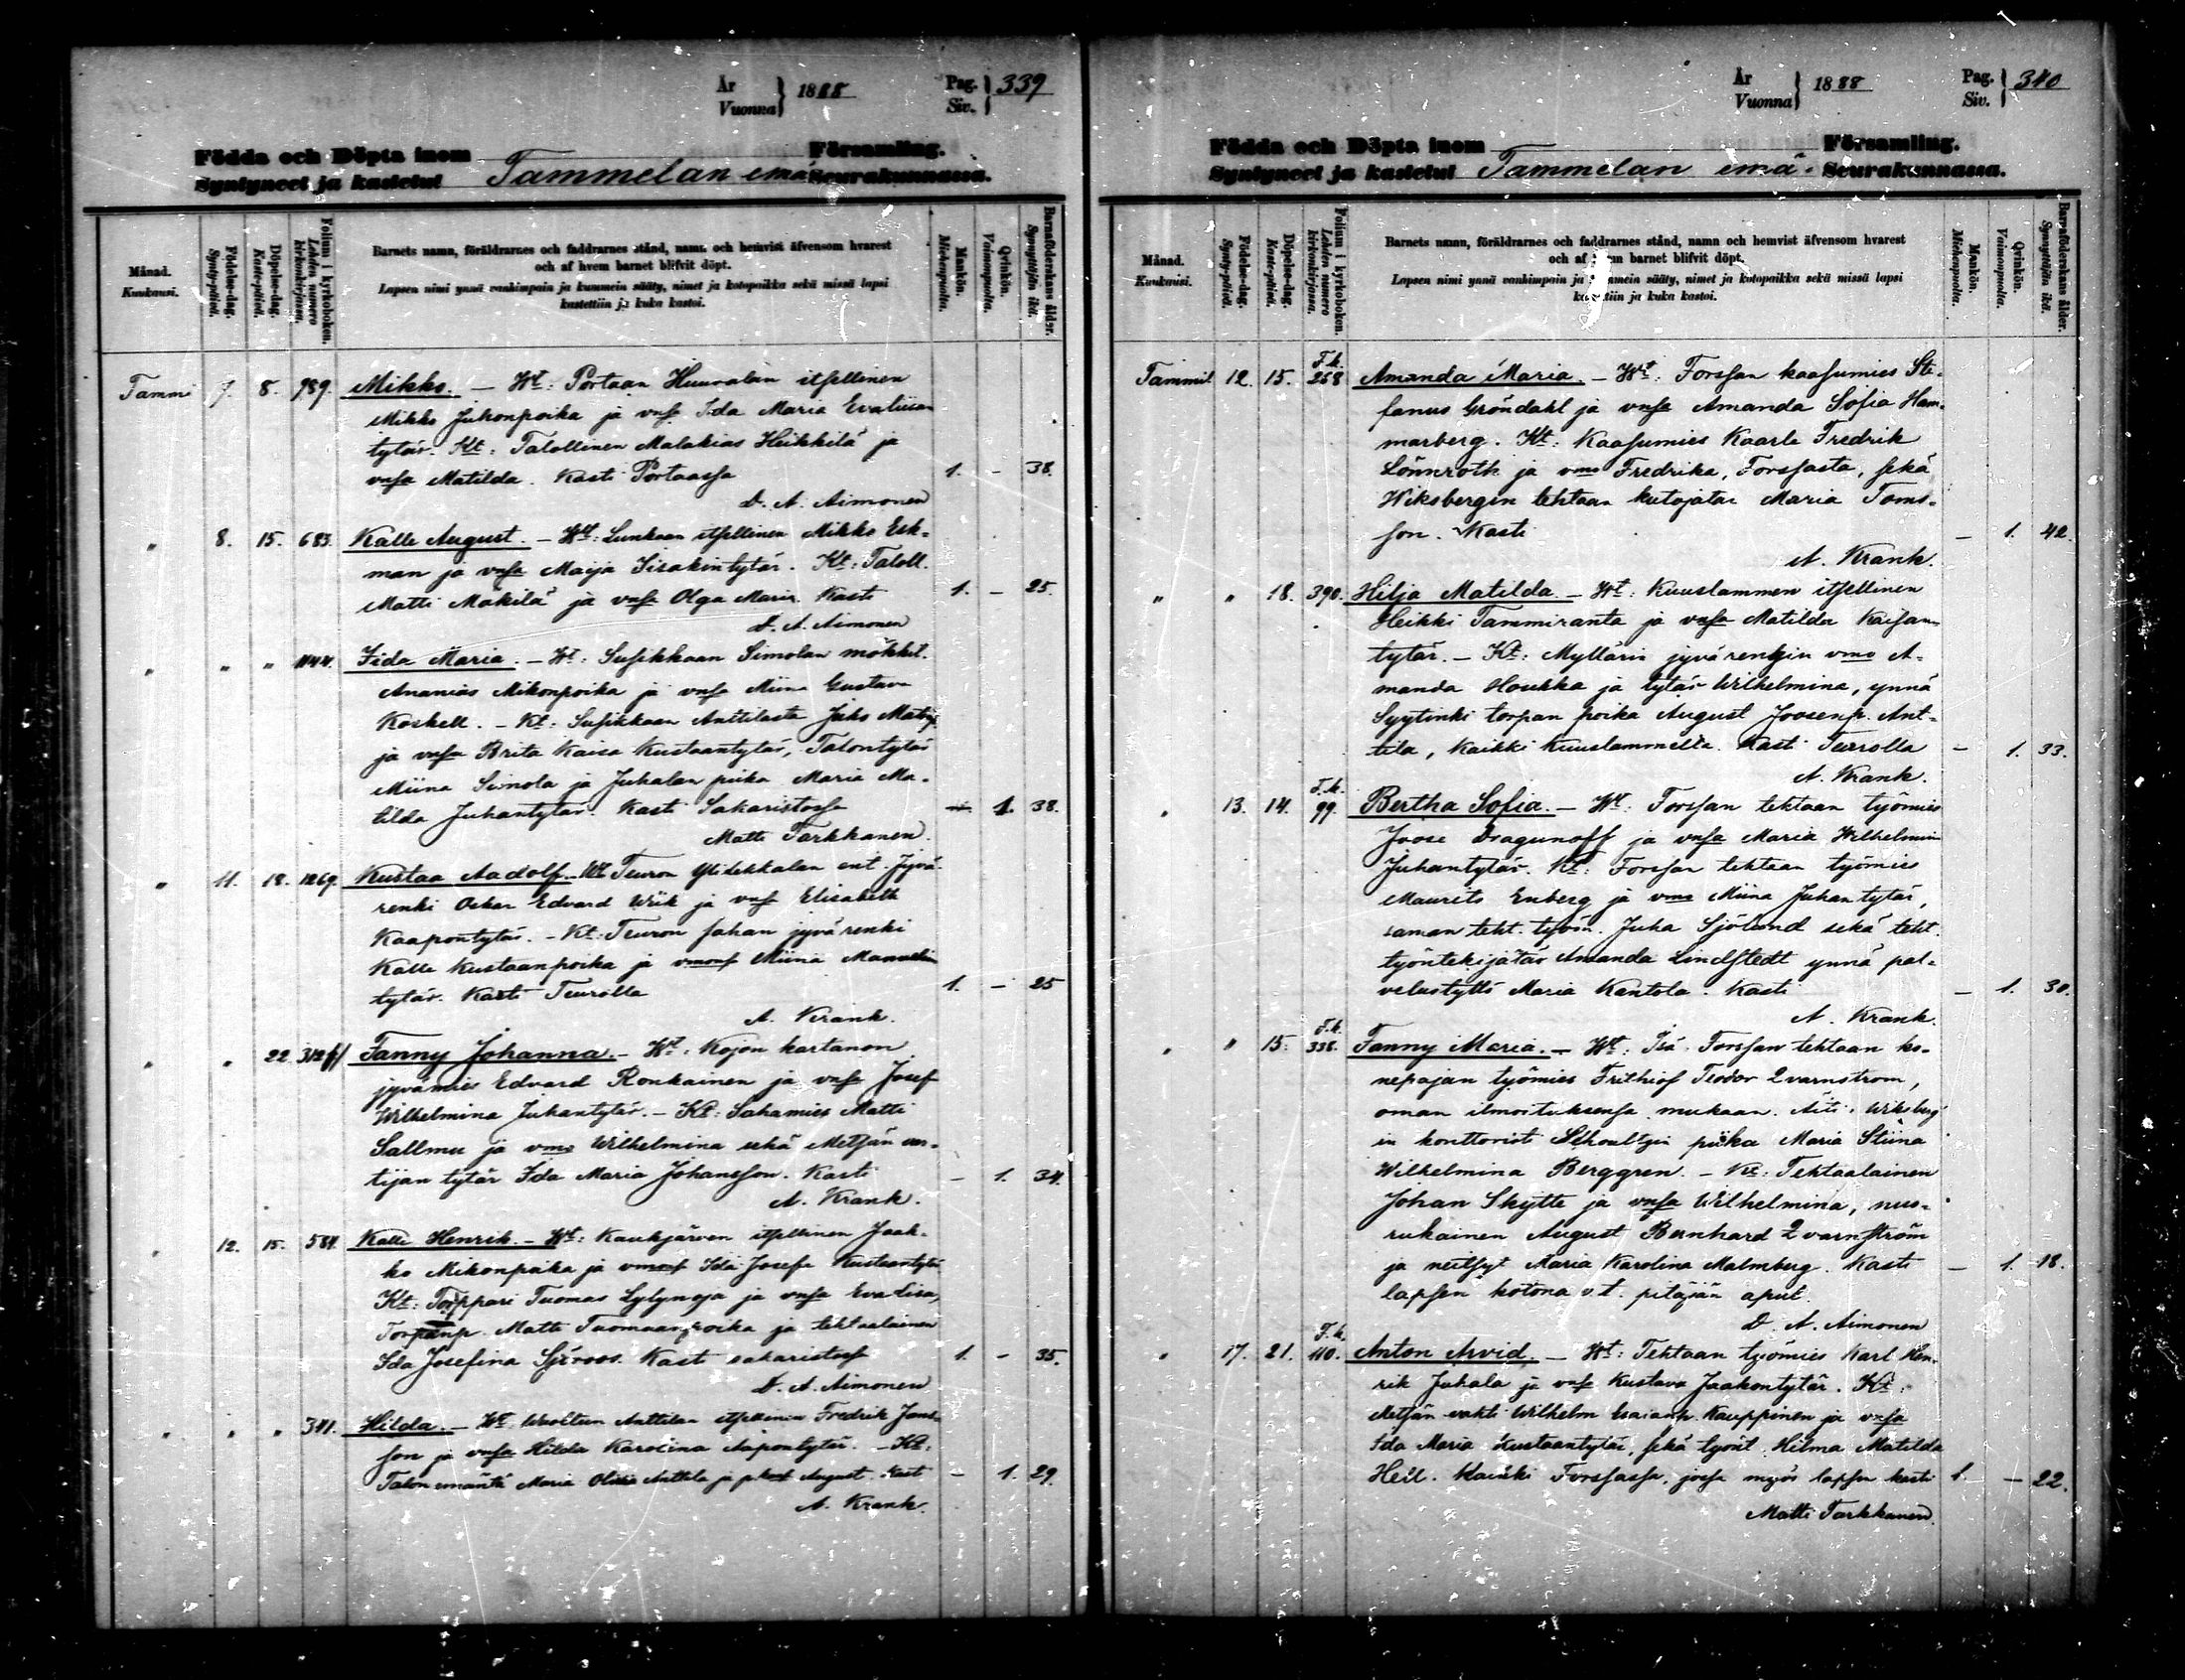 År
Vuonna } 1888
Pag.
Siv. } 339
Födda och Döpta inom Församling.
Syntyneet ja kastetut Tammelan emä Seurakunnassa.
Månad.
Kuukausi.
Födelse-dag.
Synty-päivä.
Döpelse-dag.
Kaste-päivä.
Folium i kyrkoboken.
Lehden numero
kirkonkirjassa.
Barnets namn, föräldrarnes och faddrarnes stånd, namn och hemvist äfvensom hvarest
och af hvem barnet blifvit döpt.
Lapsen nimi ynnä vanhimpain ja kummein sääty, nimet ja kotopaikka sekä missä lapsi
kastettiin ja kuka kastoi.
Mankön.
Miehenpuolta.
Qvinkön.
Vaimonpuolta.
Barnaföderskans ålder.
Synnyttäjän ikä.
Tammi 7. 8. 789. Mikko. — Wt: Portaan Huuvalan itsellinen
Mikko Juhonpoika ja vnsa Ida Maria Evaliisan
tytär. Kt: Talollinen Malakias Heikkilä ja
vnsa Matilda. Kasti Portaassa 1. - 38.
D. A. Aimonen
" 8. 15. 683. Kalle August. — Wt: Lunkaan itsellinen Mikko Esk-
man ja vnsa Maija Iisakintytär. Kt: Taloll.
Matti Mäkilä ja vnsa Olga Maria. Kasti 1. - 25.
D. A. Aimonen
" " " 1144. Iida Maria. — Wt: Susikkaan Simolan mökkil.
Ananias Mikonpoika ja vnsa Miina Gustava
Koskell. — Kt: Susikkaan Anttilasta Juho Matinp.
ja vnsa Brita Kaisa Kustaantytär, Talontytär
Miina Simola ja Juhalan piika Maria Ma-
tilda Juhantytär. Kasti Sakaristossa 1. 38.
Matti Tarkkanen.
" 11. 18. 1269. Kustaa Aadolf. — Wt Teuron Ylidekkalan ent. Jyvä-
renki Oskar Edvard Wiik ja vnsa Elisabeth
Kaapontytär. — Kt: Teuron sahan jyvärenki
Kalle Kustaanpoika ja vmonsa Miina Manuelin
tytär. Kasti Teurolla 1. - 25
A. Krank.
" " 22. 312 Fanny Johanna. — Wt: Kojon kartanon
jyvämies Edvard Ronkainen ja vnsa Josef
Wilhelmina Juhantytär. — Kt: Sahamies Matti
Sallmu ja vmo Wilhelmina sekä Metsän var-
tijan tytär Ida Maria Johansson. Kasti - 1. 34.
A. Krank.
" 12. 15. 584. Kalle Henrik. — Wt: Kaukjärven itsellinen Jaak-
ko Mikonpoika ja vmonsa Ida Josefa Kustaantytär
Kt: Torppari Tuomas Lylynoja ja vnsa Eva Lisa,
Torpanp. Matti Tuomaanpoika ja tehtaalainen
Ida Josefina Sjöroos. Kasti sakaristossa 1. - 35.
D. A. Aimonen
" " " 341. Hilda. — Wt: Anttilan itsellinen Fredrik Jans-
son ja vnsa Hilda Karolina Aapontytär. — Kt:
Talon emäntä Maria Olivia Anttila ja August. Kasti - 1. 29.
A. Krank.
År
Vuonna } 1888
Pag.
Siv. } 340
Födda och Döpta inom Församling.
Syntyneet ja kastetut Tammelan emä- Seurakunnassa.
Månad.
Kuukausi.
Födelse-dag.
Synty-päivä.
Döpelse-dag.
Kaste-päivä.
Folium i kyrkoboken.
Lehden numero
kirkonkirjassa.
Barnets namn, föräldrarnes och faddrarnes stånd, namn och hemvist äfvensom hvarest
och af barnet blifvit döpt.
Lapsen nimi ynnä vanhimpain ja sääty, nimet ja kotopaikka sekä missä lapsi
ja kuka kastoi.
Mankön.
Miehenpuolta.
Qvinkön.
Vaimonpuolta.
Barnaföderskans ålder.
Synnyttäjän ikä.
Tammik. 12. 15. F.k. 268 Amanda Maria. — Wt: Forssan kaasumies Ste-
fanus Gröndahl ja vnsa Amanda Sofia Ham-
marberg. Kt: Kaasumies Kaarle Fredrik
Lönnroth ja vmo Fredrika, Forssasta, sekä
Wiksbergin tehtaan kutojatar Maria Toms-
son. Kasti — 1. 42.
A. Krank.
" " 18. 390. Hilja Matilda. — Wt: Kuuslammen itsellinen
Heikki Tammiranta ja vnsa Matilda Kaisan
tytär. — Kt: Myllärin jyvärengin vmo A-
manda Houkka ja tytär Wilhelmina, ynnä
Syytinki torpan poika August Joosenp. Ant-
tila, kaikki Kuuslammella. Kasti Teurolla — 1. 33.
A. Krank.
" 13. 14. F.k. 99. Bertha Sofia. — Wt: Forssan tehtaan työmies
Joose Dragunoff ja vnsa Maria Wilhelmiin
Juhantytär. Kt: Forssan tehtaan työmies
Maurits Enberg ja vmo Miina Juhantytär,
saman teht. työm. Juha Sjölund sekä teht.
työntekijätär Amanda Lindstedt ynnä pal-
velustyttö Maria Kantola. Kasti — 1. 30.
A. Krank.
" " 15. F.k. 338. Fanny Maria. — Wt: Isä: Forssan tehtaan ko-
nepajan työmies Frithiof Teodor Qvarnstrom,
oman ilmoituksensa mukaan. Äiti: Wiksberg-
in konttoristi Schoultzin piika Maria Stiina
Wilhelmina Berggren. — Kt: Tehtaalainen
Johan Skytte ja vnsa Wilhelmina, nuo-
rukainen August Bernhard Qvarnström
ja neitsyt Maria Karolina Malmberg. Kasti — 1. 18.
lapsen kotona v.t. pitäjän apul.
D. A. Aimonen
" 17. 21. F.k. 110. Anton Arvid. — Wt: Tehtaan työmies Karl Hen-
rik Juhala ja vnsa Kustava Jaakontytär. Kt:
Metsän vahti Wilhelm Esaianp. Kauppinen ja vnsa
Ida Maria Kustaantytär, sekä työnt. Hilma Matilda
Heil. Kaikki Forssassa, jossa myös lapsen kasti 1. — 22.
Matti Tarkkanen.